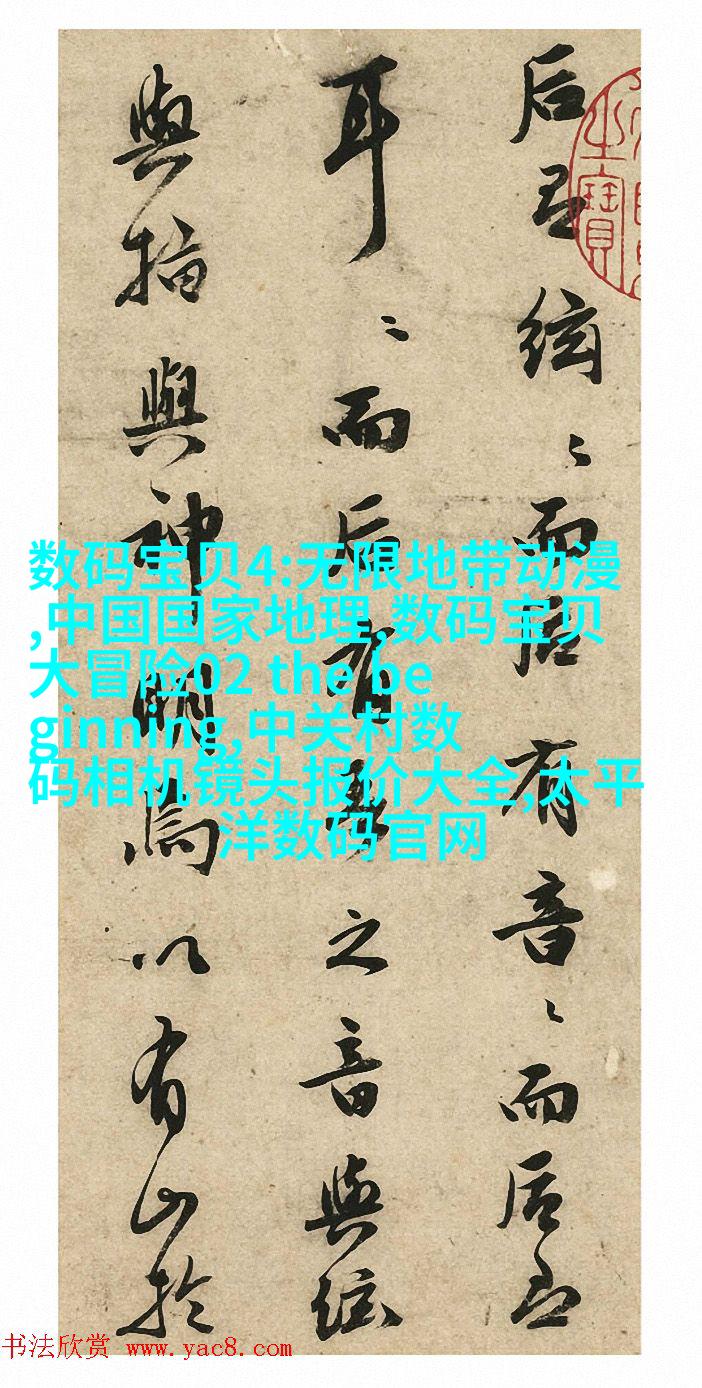 后絃〻而后有音〻而后
耳〻而后有吾之音與絃
與指與神明焉以有山於
之寶
数码宝贝4:无限地带动漫
,中国国家地理,数码宝贝
大冒险02 the be
ginning,中关村数
码相机镜头报价大全,太平
洋数码官网
书法欣赏 www.yac8.com